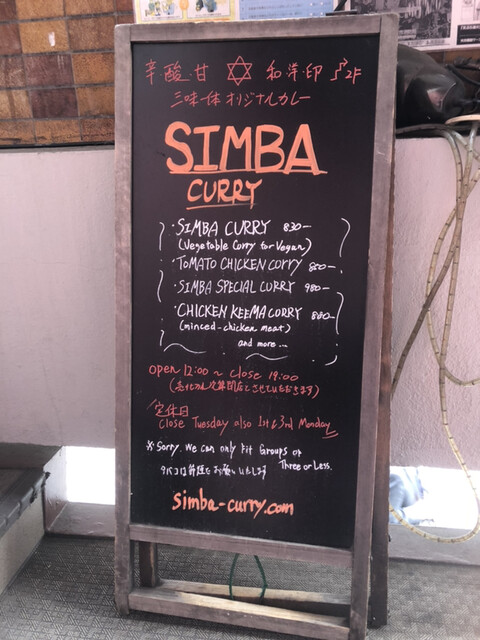 辛・酸・甘 和・洋・印 2F
三味一体オリジナルカレー
SIMBA
CURRY
・SIMBA CURRY 830-
(Vegetable Curry for Vegan)
・TOMATO CHICKEN CURRY 850-
・SIMBA SPECIAL CURRY 980-
・CHICKEN KEEMA CURRY 880-
(minced-chicken meat)
and more...
open 12:00 ~ close 19:00
定休日
Close Tuesday also 1st & 3rd Monday
※Sorry. We can only Fit Groups of
Three or Less.
simba-curry.com